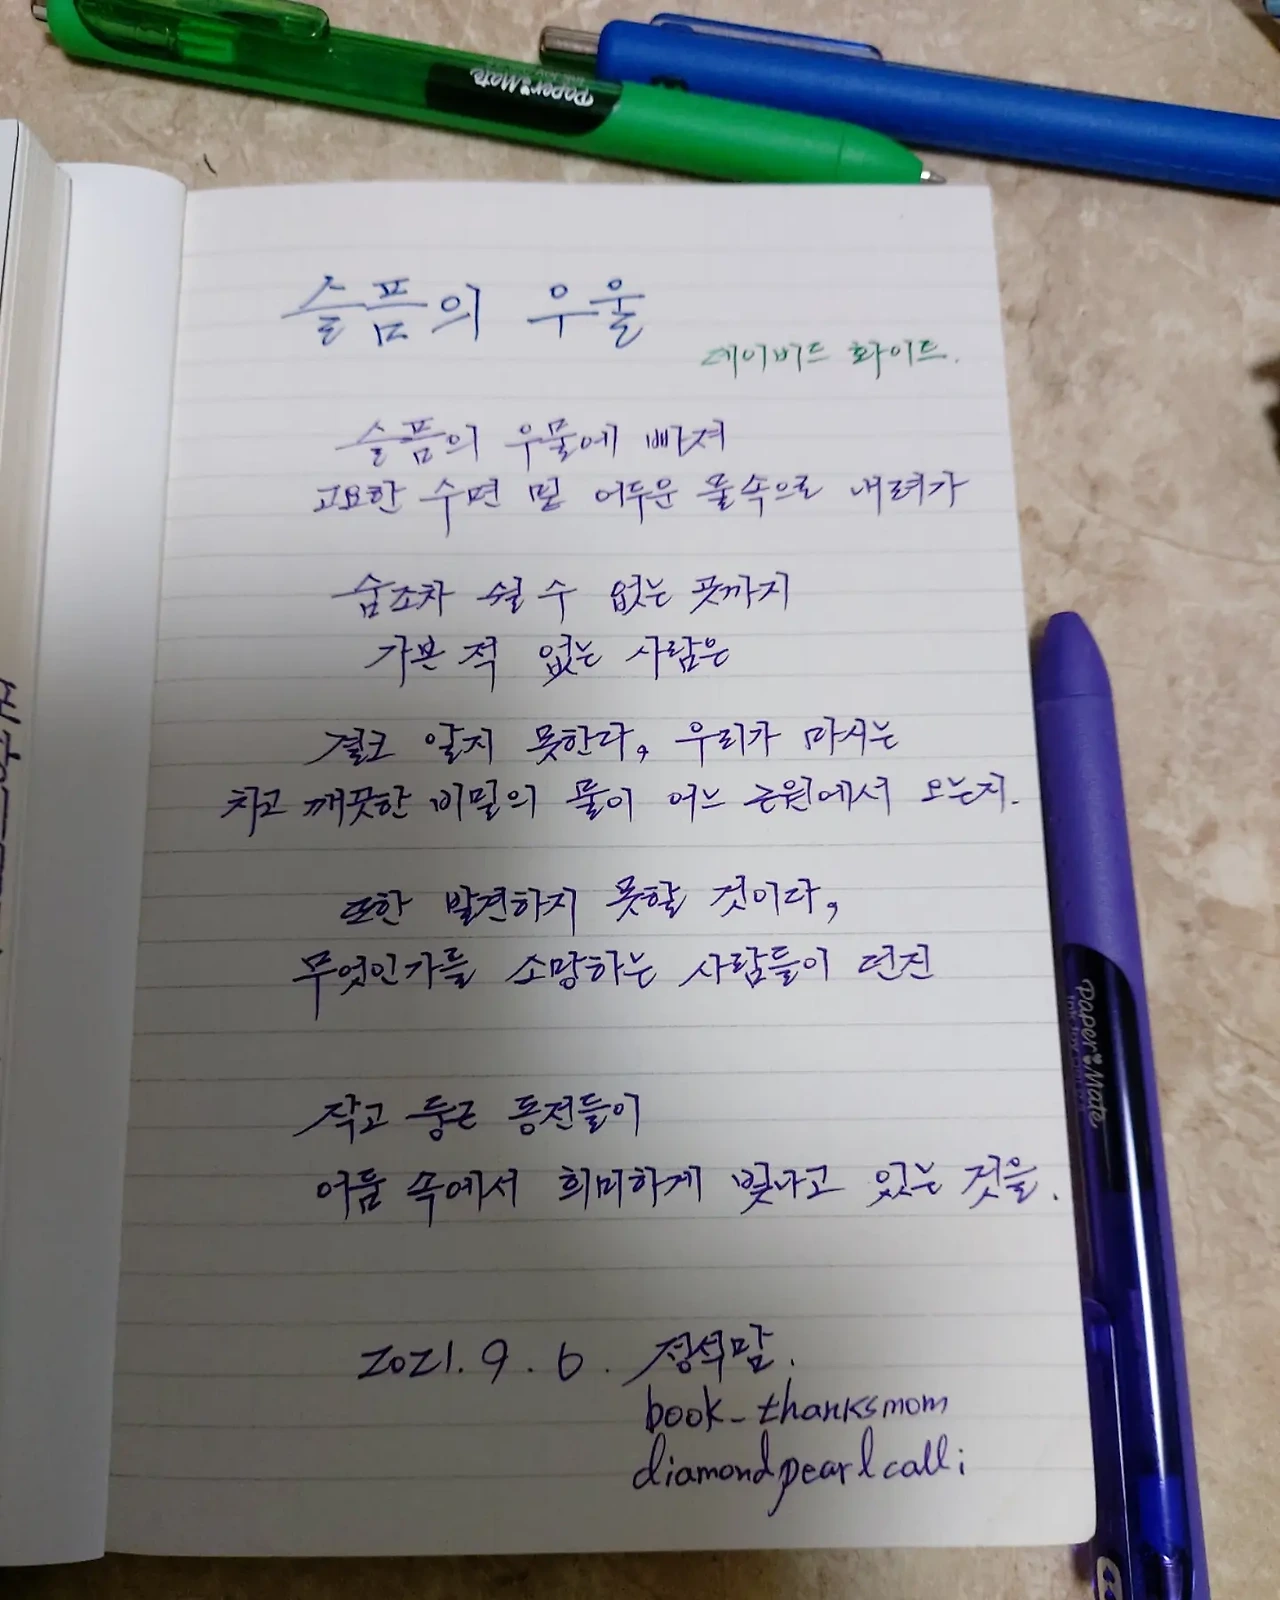 Paper Mate
슬픔의 우울
데이버드 화이트.
슬픔의 우물에 빠져
고요한 수면 밑 어두운 물속으로 내려가
숨조차 쉴 수 없는 곳까지
가본 적 없는 사람은
결코 알지 못한다, 우리가 마시는
차고 깨끗한 비밀의 물이 어느 근원에서 오는지.
또한 발견하지 못할 것이다,
무엇인가를 소망하는 사람들이 던진
작고 둥근 동전들이
어둠 속에서 희미하게 빛나고 있는 것을.
2021.9.6. 정석맘.
book_thanksmom
diamondpearlcalli
Paper Mate